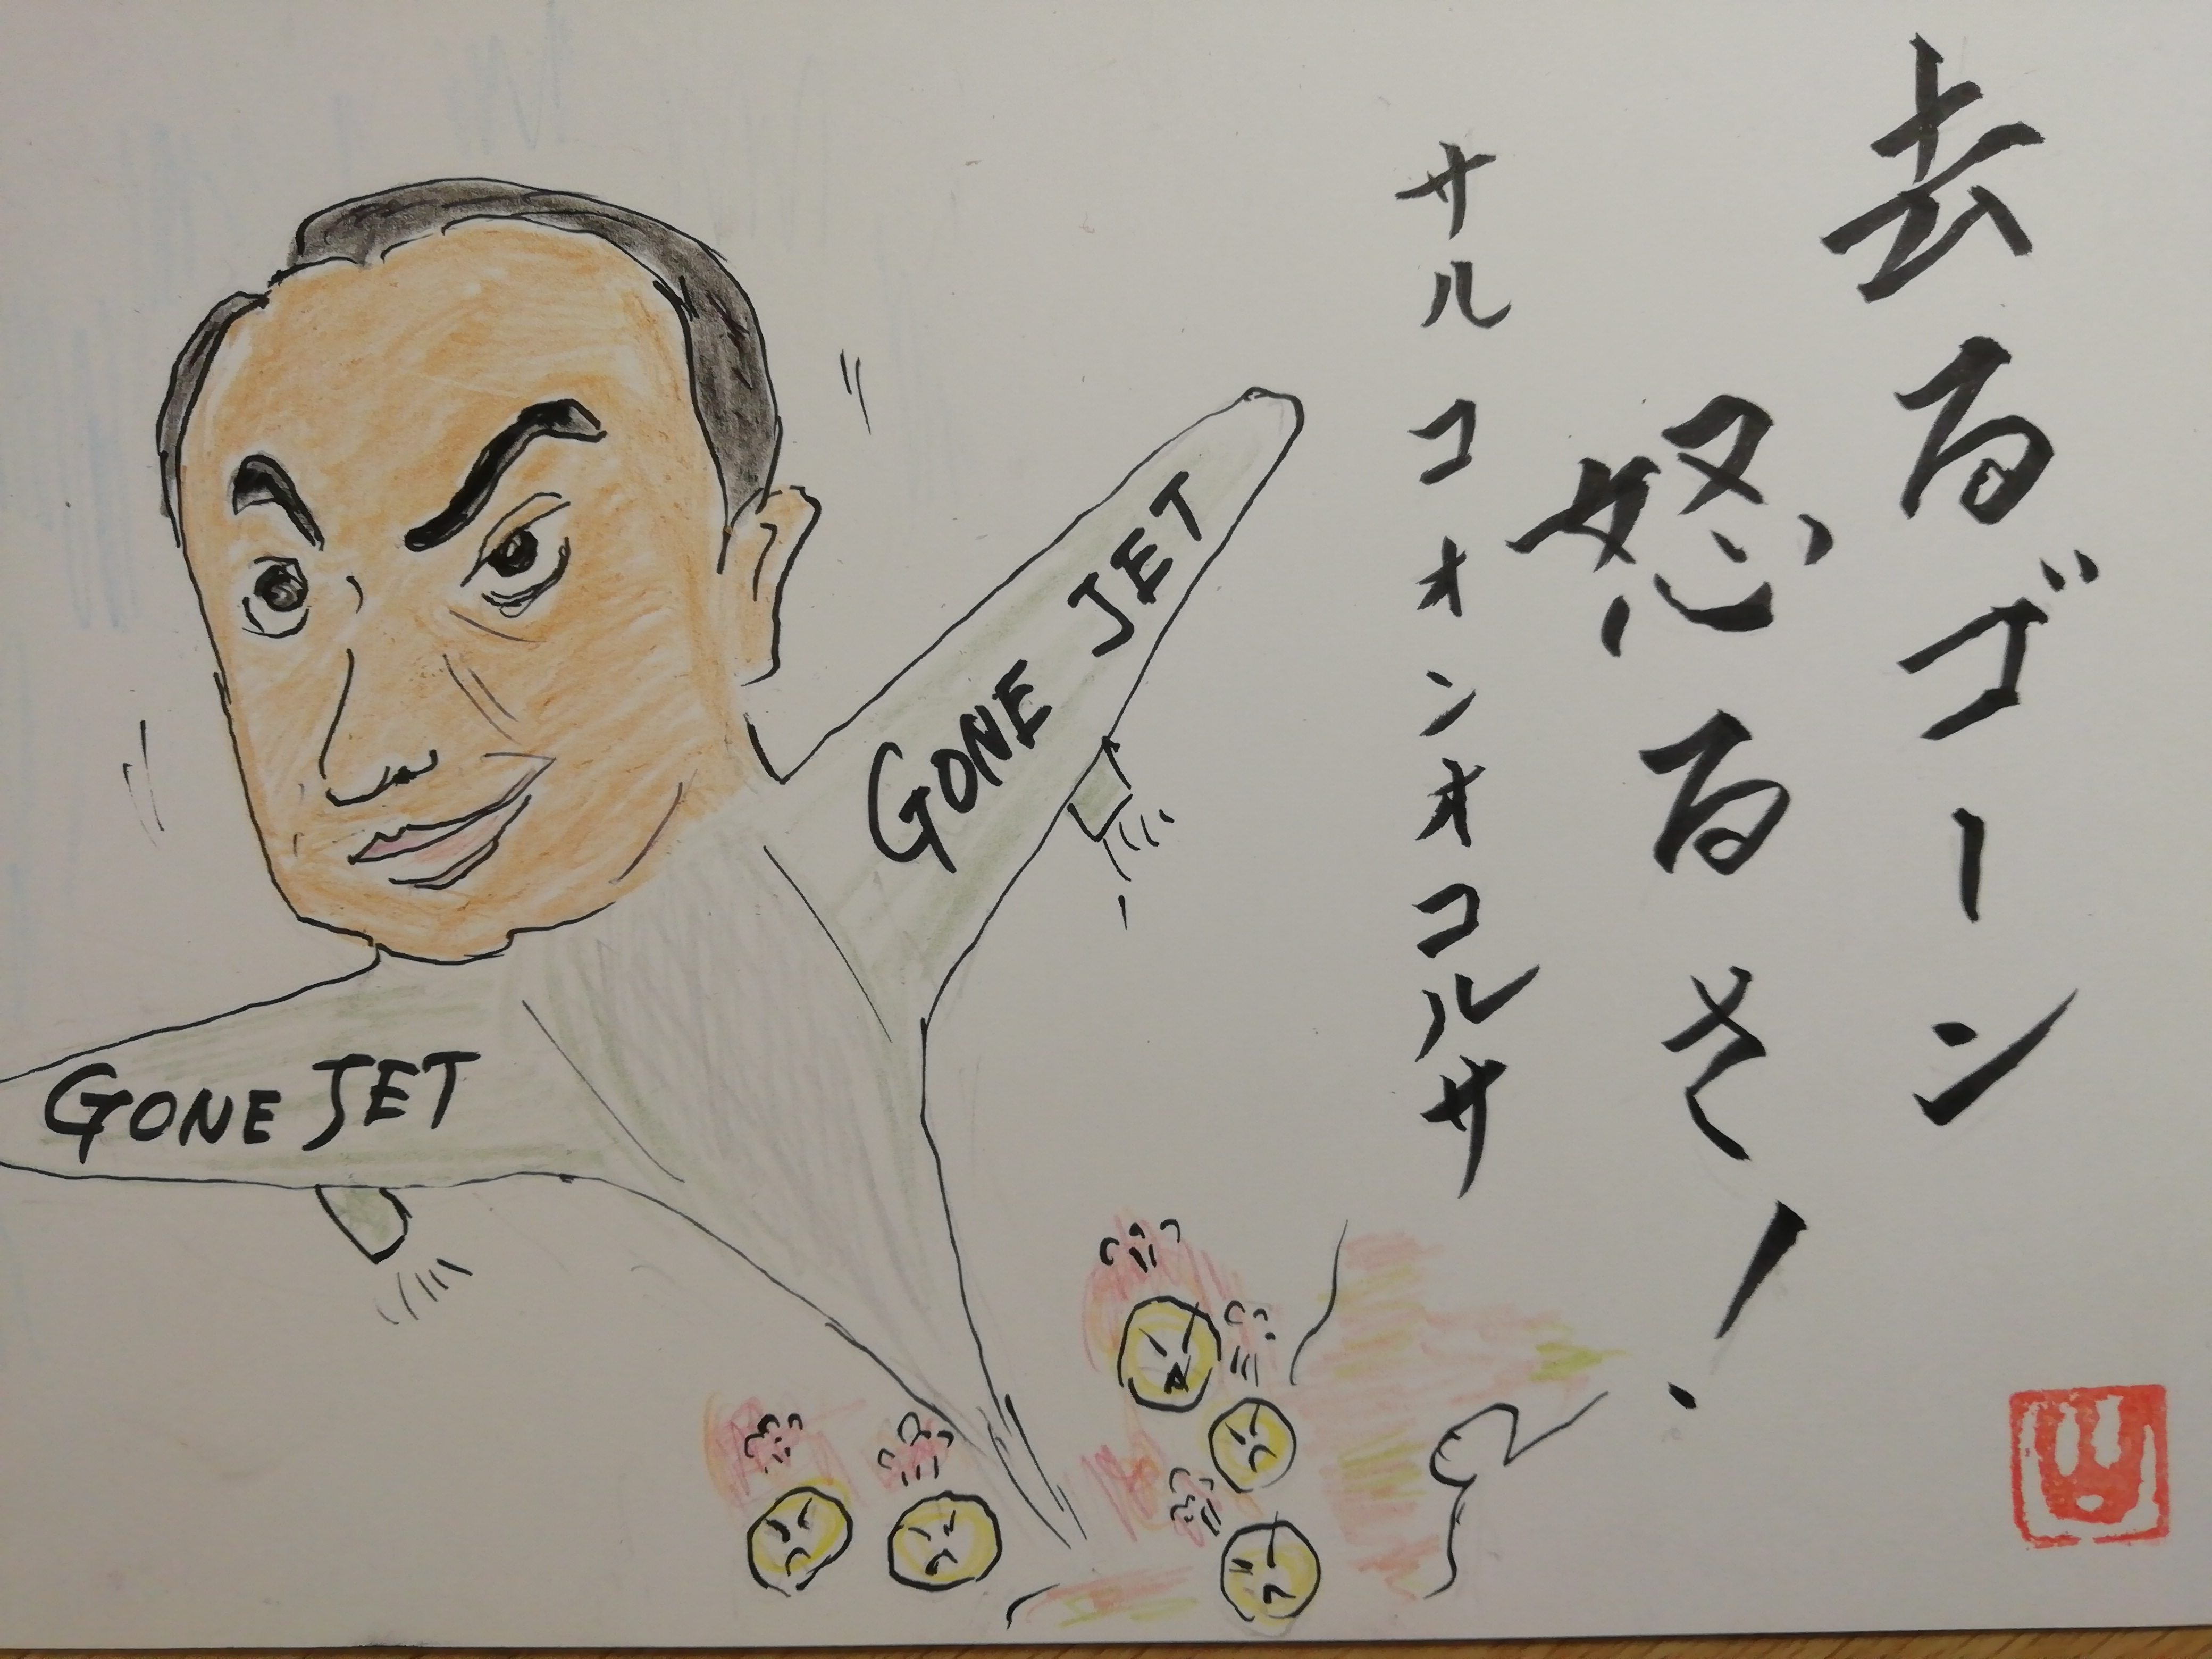 去るゴーン
怒るさ！
サルコオンオコルサ
GONE JET
GONE JET